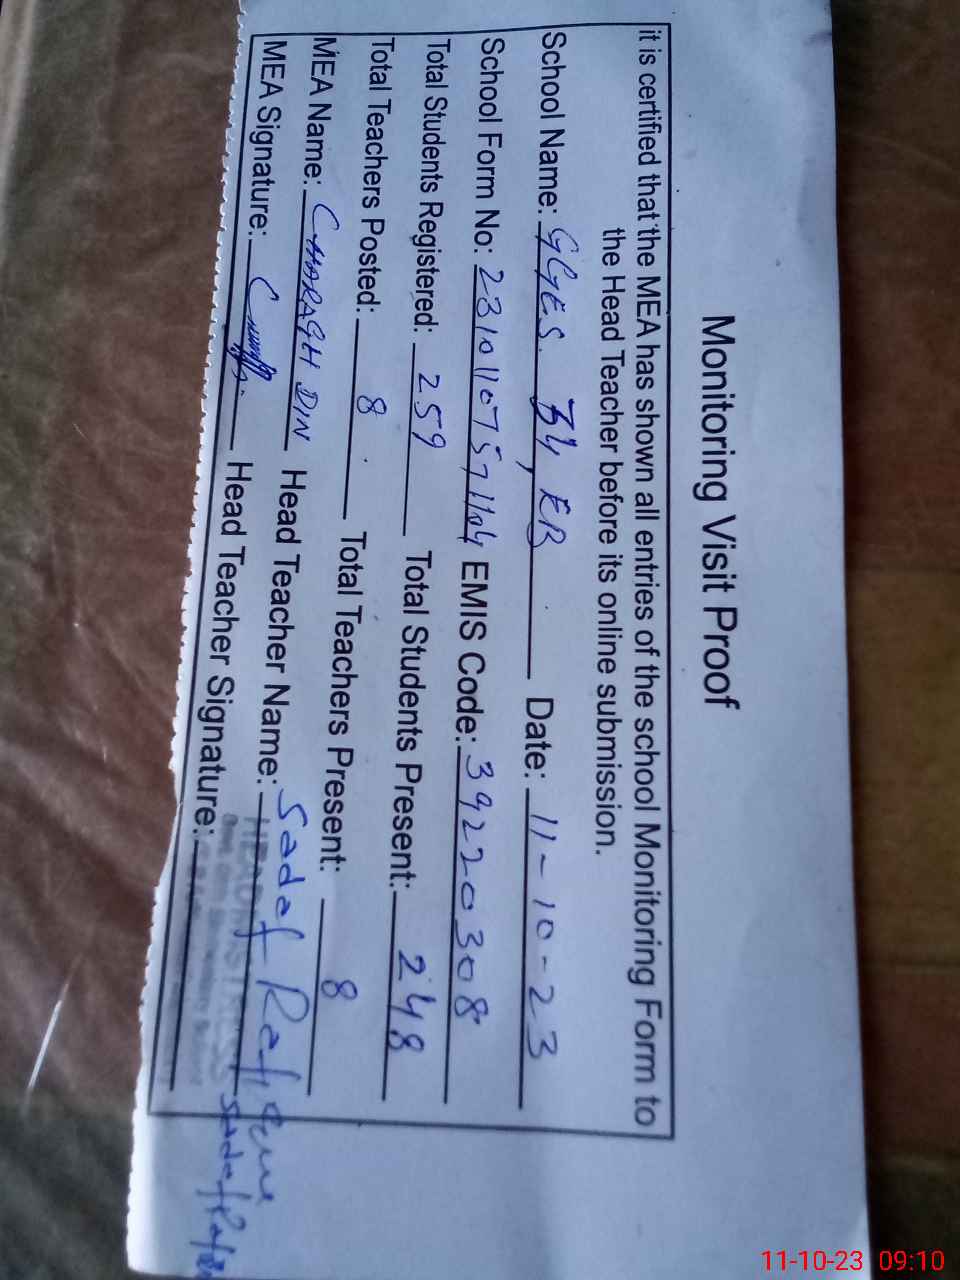 Monitoring Visit Proof
it is certified that the MEA has shown all entries of the school Monitoring Form to
the Head Teacher before its online submission.
School Name: GGES. 34, EB Date: 11-10-23
School Form No: 23101107571104 EMIS Code: 39220308
Total Students Registered: 259 Total Students Present: 248
Total Teachers Posted: 8 Total Teachers Present: 8
MEA Name: CHARAGH DIN Head Teacher Name: Sadaf
MEA Signature: Head Teacher Signature:
HEADMISTRESS
11-10-23 09:10